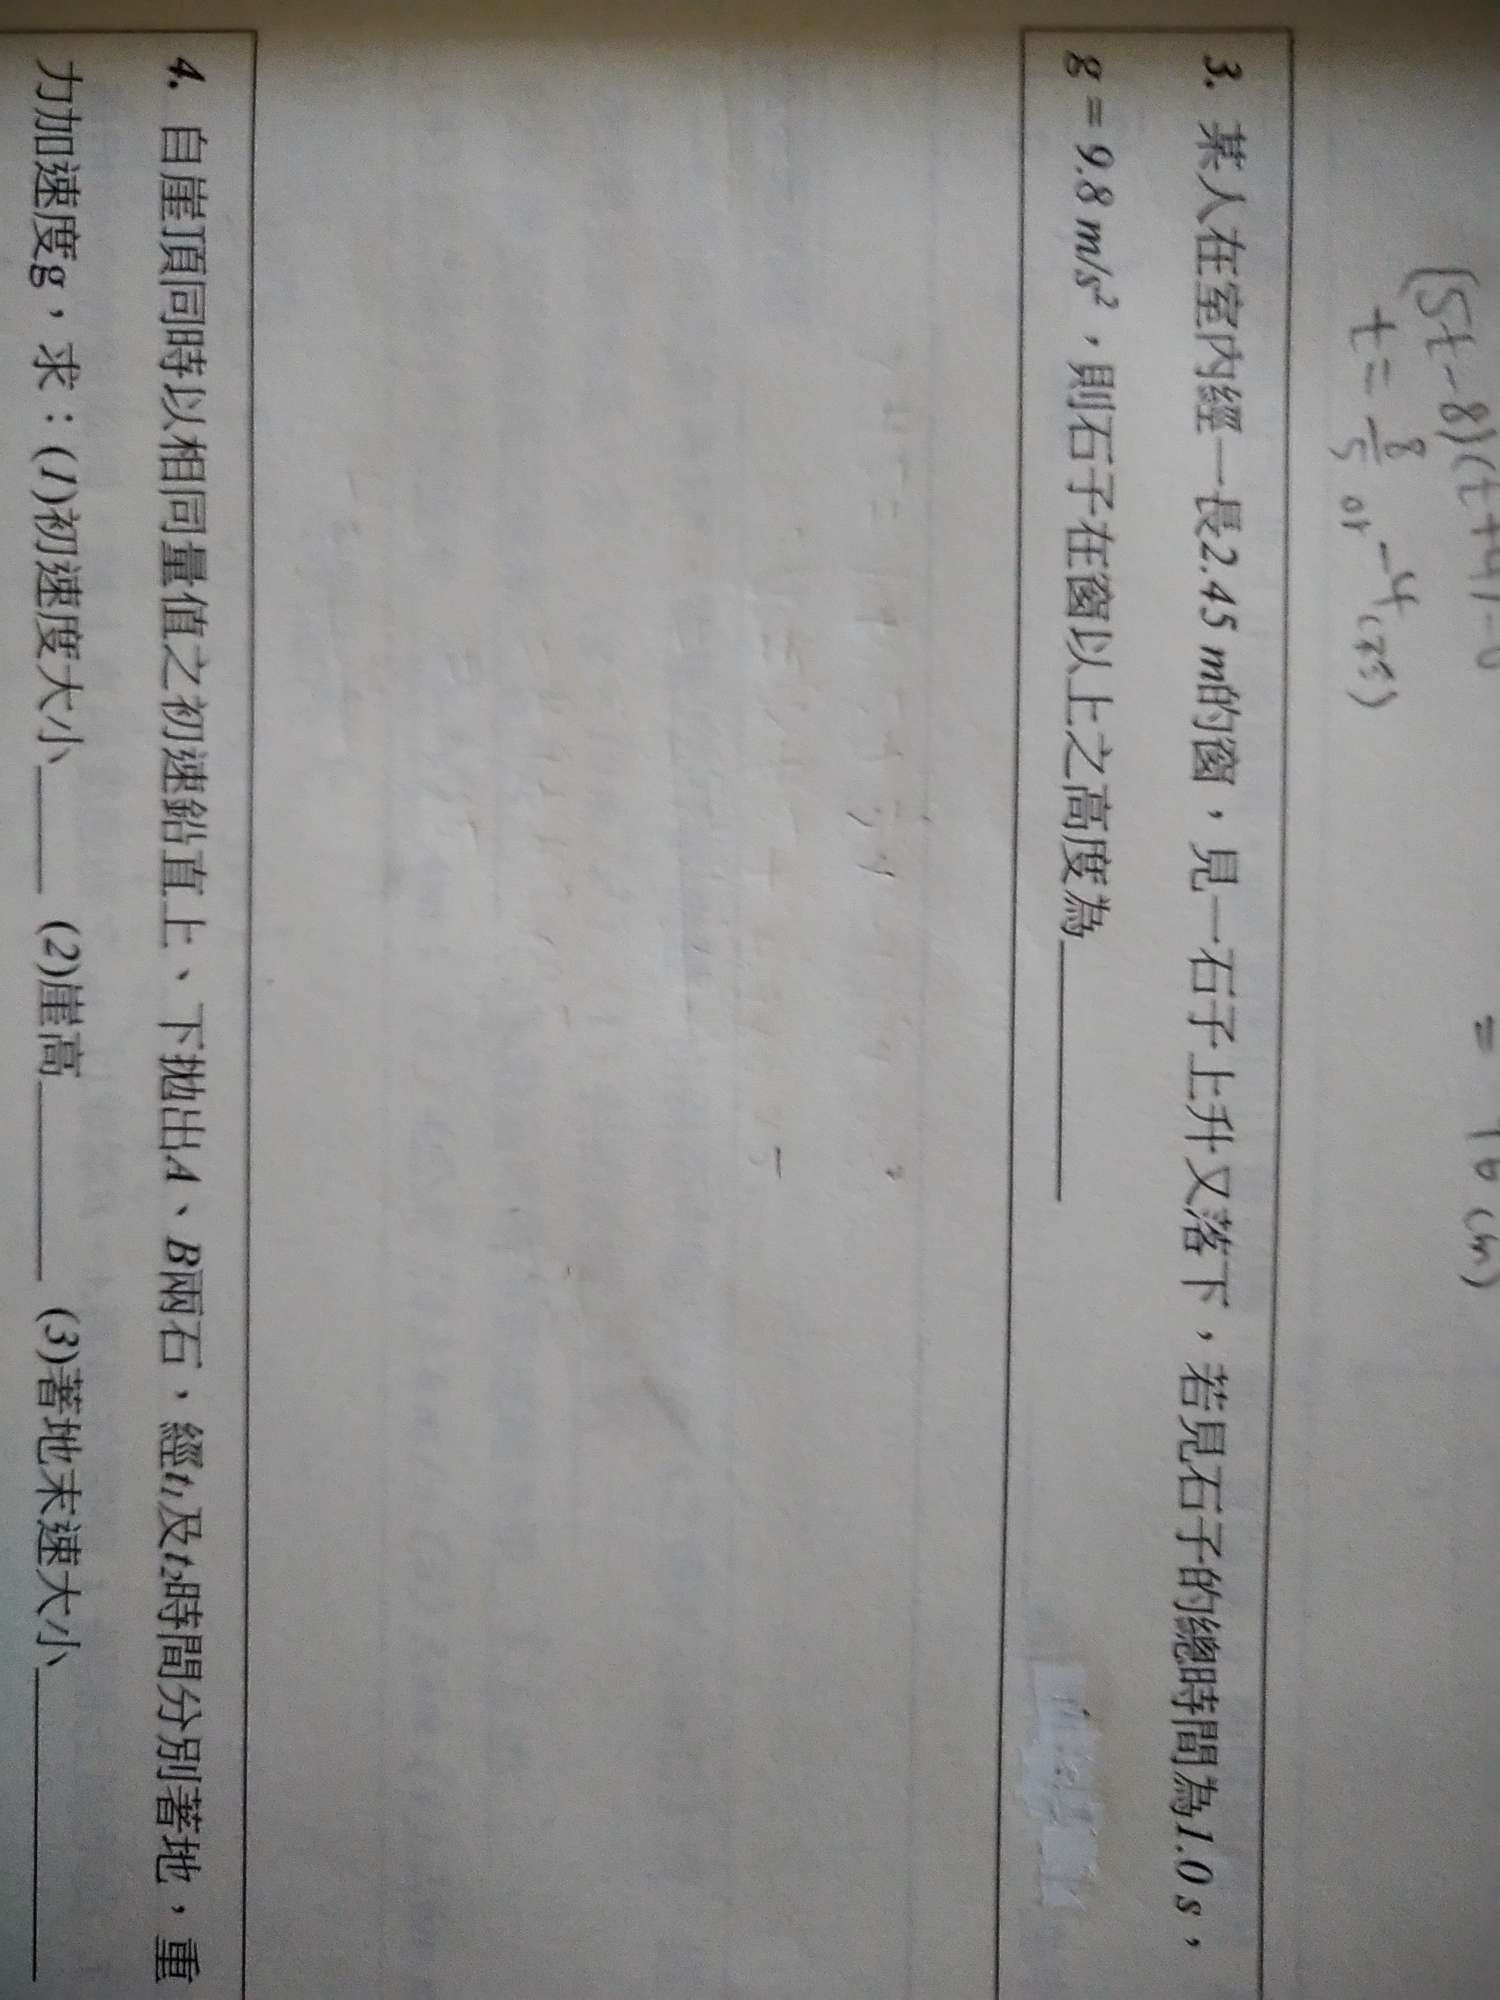 = 16 (m)
(5t-8)(t+4)=0
t= 8/5 or -4(不合)
3. 某人在室內經一長2.45 m的窗，見一石子上升又落下，若見石子的總時間為1.0 s，
g = 9.8 m/s²，則石子在窗以上之高度為
4. 自崖頂同時以相同量值之初速鉛直上、下拋出A、B兩石，經t₁及t₂時間分別著地，重
力加速度g，求：(1)初速度大小 (2)崖高 (3)著地末速大小